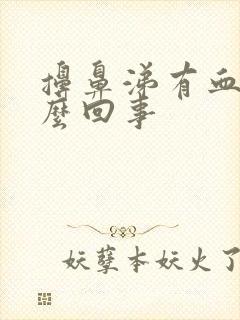 擤鼻涕有血
麼回事
妖孽本妖火了